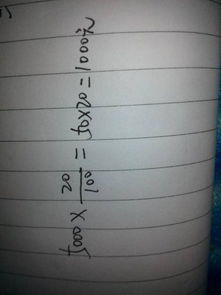 5000 × 20/100 = 50×20=1000元